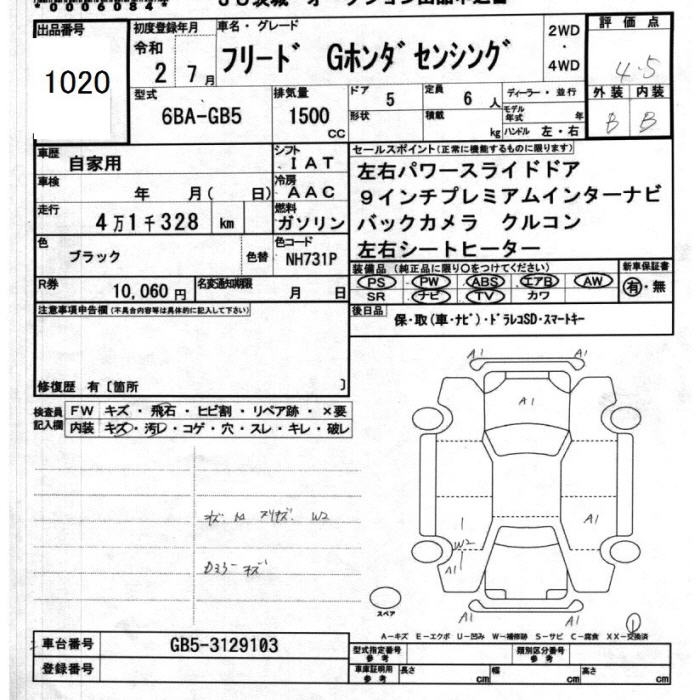 00060844
出品番号
1020
初度登録年月
令和
2 7月
車名・グレード
フリード Gホンダセンシング
2WD
・
4WD
評価点
4.5
外装 内装
B B
型式
6BA-GB5
排気量
1500
CC
ドア
5
形状
定員
6人
積載
kg
ディーラー・並行
モデル年式 年
ハンドル 左・右
車歴
自家用
シフト
IAT
車検
年 月( 日)
冷房
AAC
走行
4万1千328 km
燃料
ガソリン
色
ブラック
色替
色コード
NH731P
R券
10,060円
名変通知期限
月 日
セールスポイント(正常に機能するものに限ります)
左右パワースライドドア
9インチプレミアムインターナビ
バックカメラ クルコン
左右シートヒーター
装備品(純正品に限り○をつけてください)
PS PW ABS エアB AW
SR ナビ TV カワ
新車保証書
有・無
後日品
保・取(車・ナビ)・ドラレコSD・スマートキー
注意事項申告欄(不具合内容等は具体的に記入して下さい)
修復歴 有〔箇所 〕
検査員
記入欄
FW キズ・飛石・ヒビ割・リペア跡・×要
内装 キズ・汚レ・コゲ・穴・スレ・キレ・破レ
W2
キズ
A1 A1
A1
A1
W2
A1
A1 A1
スペア
1
A－キズ E－エクボ U－凹み W－補修跡 S－サビ C－腐食 XX－交換済
車台番号
GB5-3129103
登録番号
型式指定番号
参考
類別区分番号
参考
車庫証明用
参考
長さ cm
幅 cm
高さ cm